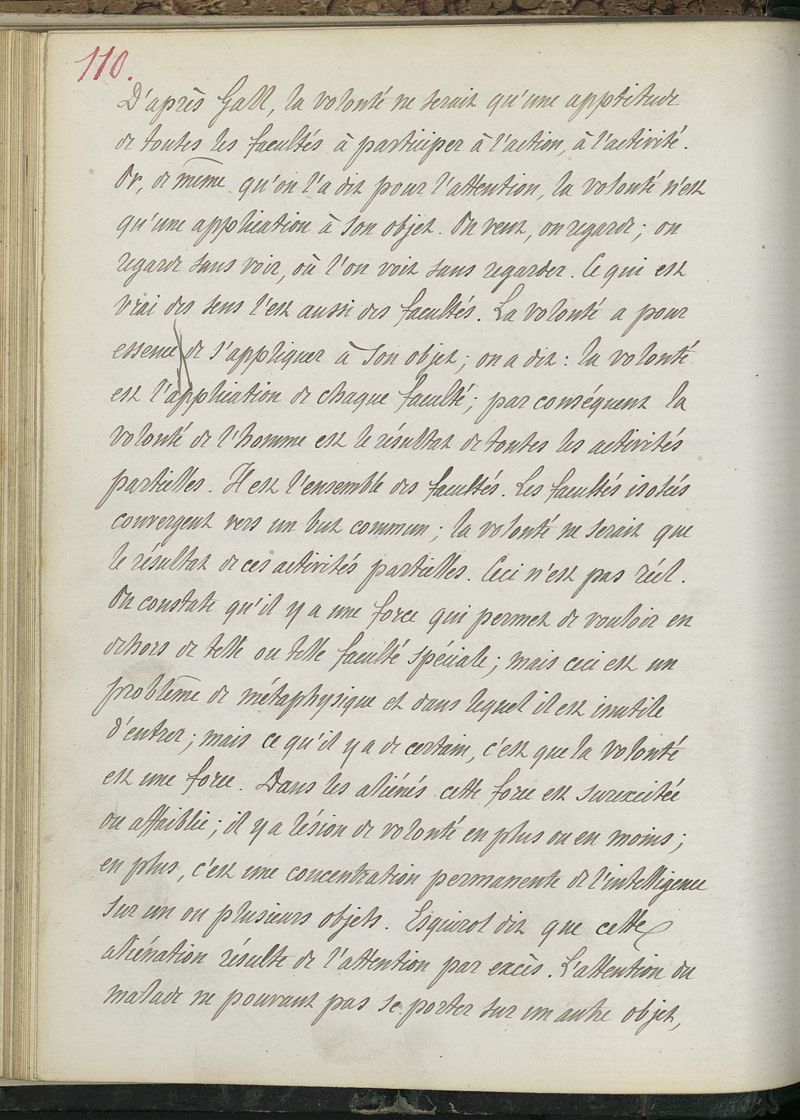 110.
D'après Gall, la volonté ne serait qu'une apptitude
de toutes les facultés à participer à l'action, à l'activité.
Or, de même qu'on l'a dit pour l'attention, la volonté n'est
qu'une application à son objet. On veut, on regarde; on
regarde sans voir, où l'on voit sans regarder. Ce qui est
vrai des sens l'est aussi des facultés. La volonté a pour
essence de s'appliquer à son objet; on a dit: la volonté
est l'application de chaque faculté; par conséquent la
volonté de l'homme est le résultat de toutes les activités
partielles. Il est l'ensemble des facultés. Les facultés isolées
convergent vers un but commun; la volonté ne serait que
le résultat de ces activités partielles. Ceci n'est pas réel.
On constate qu'il y a une force qui permet de vouloir en
dehors de telle ou telle faculté spéciale; mais ceci est un
problème de métaphysique et dans lequel il est inutile
d'entrer; mais ce qu'il y a de certain, c'est que la volonté
est une force. Dans les aliénés cette force est surexcitée
ou affaiblie; il y a lésion de volonté en plus ou en moins;
en plus, c'est une concentration permanente de l'intelligence
sur un ou plusieurs objets. Esquirol dit que cette
aliénation résulte de l'attention par excès. L'attention du
malade ne pouvant pas se porter sur un autre objet,